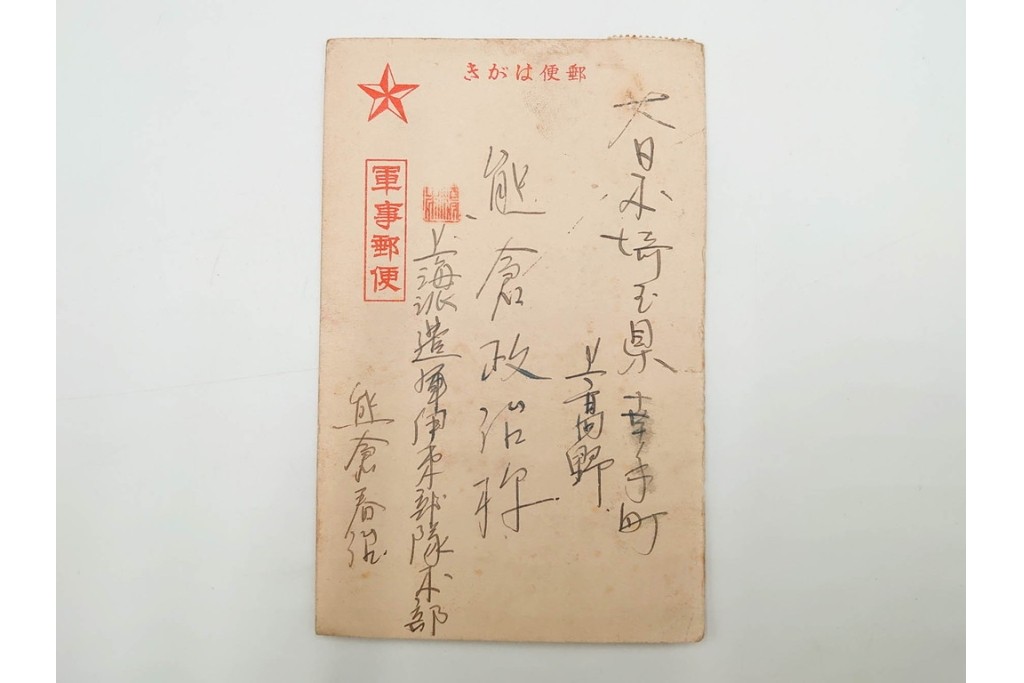 きがは便郵
大日本埼玉県幸手町
上高野
熊倉政治様
軍事郵便
上海派遣軍伊東部隊本部
熊倉春